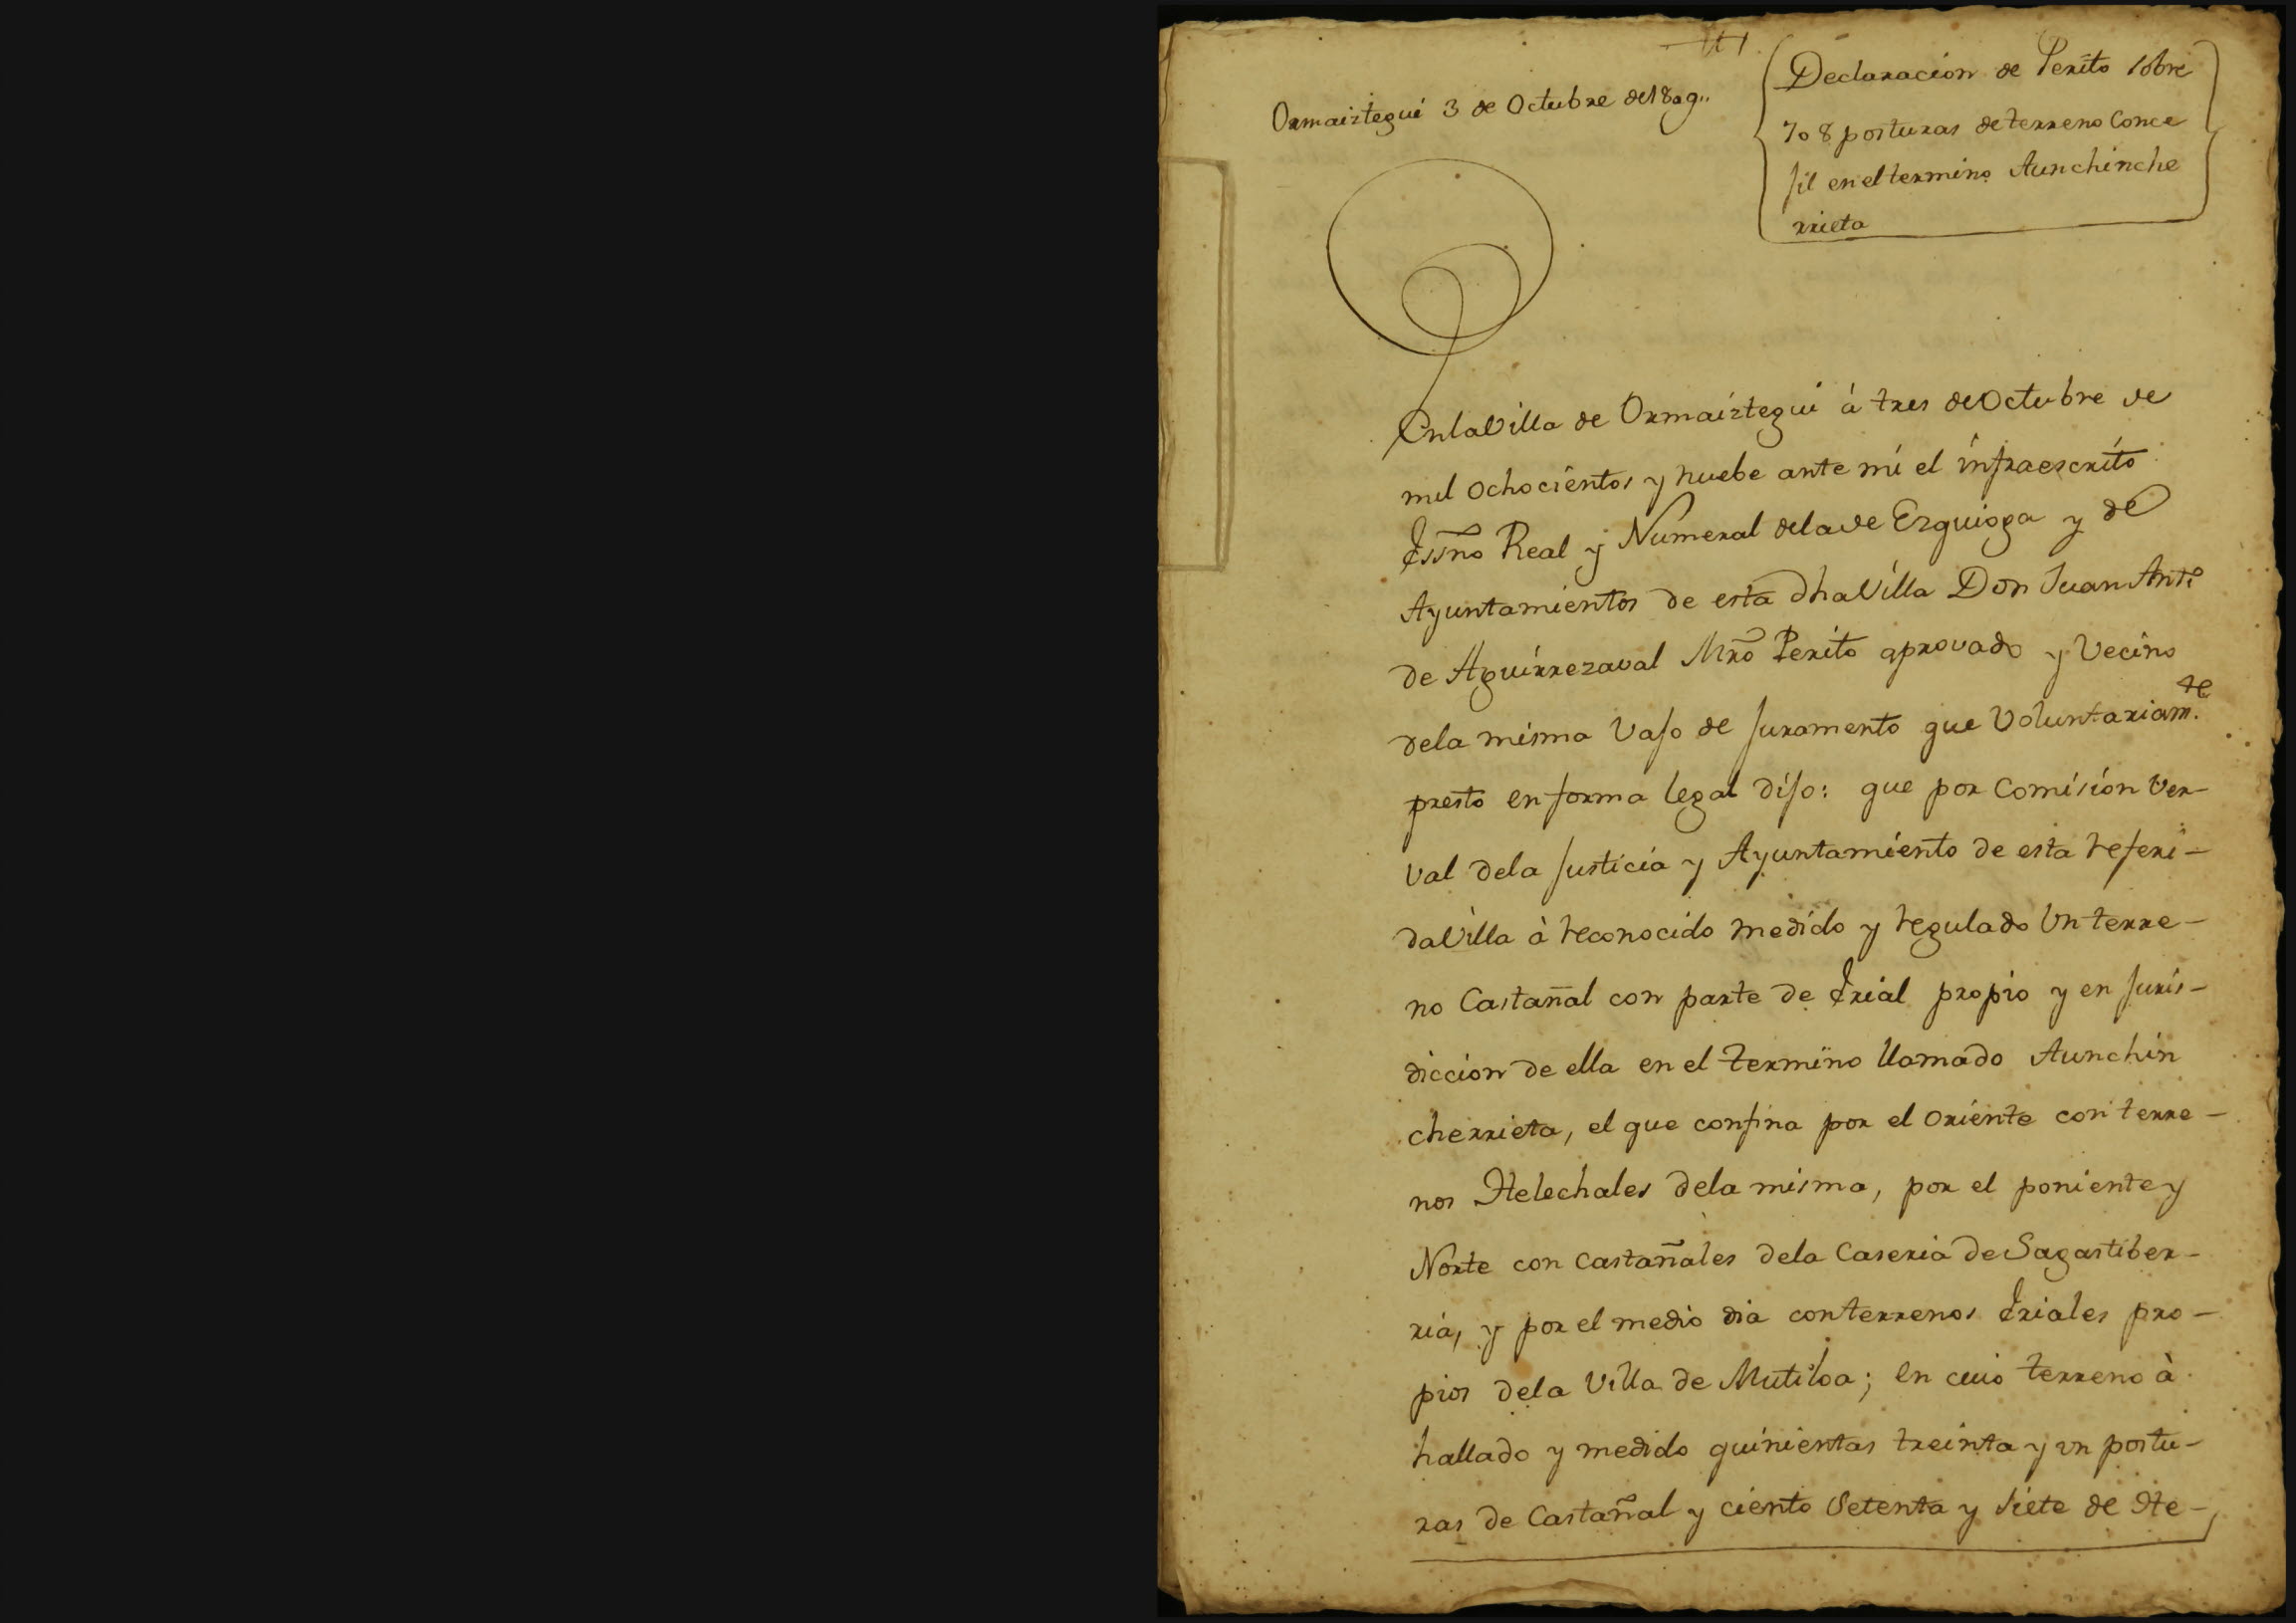 Ormaiztegui 3 de Octubre del 809..
Declaracion de Perito sobre
708 posturas de terreno Conce
jil en el termino Aunchinche
rrieta
En la Villa de Ormaiztegui à tres de Octubre de
mil ochocientos y nuebe ante mi el infraescrito
Essño Real y Numeral dela de Ezquioga y de
Ayuntamientos de esta dha Villa Don Juan Antº
de Aguirrezaval Mrõ Perito aprovado y Vecino
dela misma Vajo de juramento que Voluntariam.te
presto en forma legal dijo: que por Comision Ver-
val dela justicia y Ayuntamiento de esta referi-
da Villa à reconocido medido y regulado Un terre-
no Castañal con parte de Erial propio y en juris-
diccion de ella en el termino llamado Aunchin
cherrieta, el que confina por el oriente con terre-
nos Helechales dela misma, por el poniente y
Norte con castañales dela Caseria de Sagastiber-
ria, y por el medio dia con terrenos Eriales pro-
pios dela Villa de Mutiloa; en cuio terreno à
hallado y medido quinientas treinta y un postu-
ras de Castañal y ciento Setenta y siete de He-